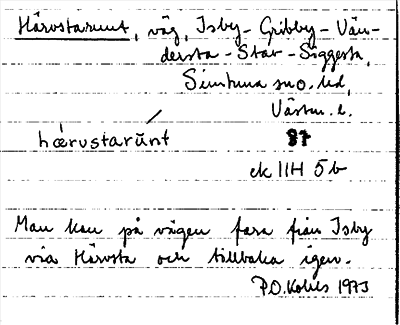 Härvstarunt, väg, Isby - Gribby - Vän-
dersta - Stav - Siggesta,
Simtuna sn o. hd,
Västm. l.
hærvstarūnt 87
ek 11H 5b
Man kan på vägen fara från Isby
via Härvsta och tillbaka igen.
P.O. 1973